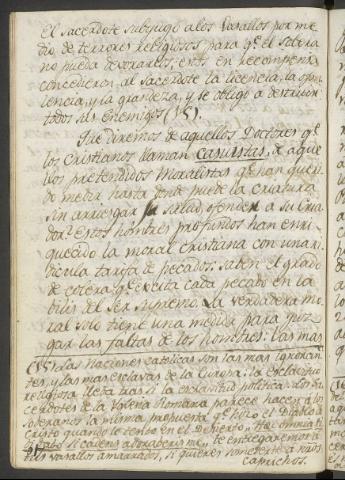 El sacerdote subyugó a los Vasallos por me
dio de terrores religiosos para qe. el sobera
no pueda devorarlos; estos en recompensa
concedieron al sacerdote la licencia, la opu
lencia, y la grandeza, y se obligó a destruir
todos sus enemigos (15).
Que diremos de aquellos Doctores qe.
los Cristianos llaman casuistas, de aque
llos pretendidos Moralistas qe. han queri
do medir hasta donde puede la criatura
sin arriesgar su salud, ofender a su Cria
dor? Estos hombres profundos han enri
quecido la moral cristiana con una ri
dicula tarifa de pecados: saben el grado
de cólera qe. excita cada pecado en la
bilis del Ser Supremo. La verdadera mo
ral solo tiene una medida para juz
gar las faltas de los hombres: las mas
(15) Las Naciones católicas son las mas ignoran
tes, y las mas esclavas de la Europa: la esclavitud
religiosa lleva tras sí la esclavitud política. Los Sa
cerdotes de la Yglesia Romana parece hacen a los
Soberanos la misma propuesta qe. hizo el Diablo a
Cristo quando le tentó en el Desierto. Haec omnia ti
bi dabo si cadens adoraberis me, te entregaremos a
tus vasallos amarrados, si quieres someterte a nuestros
caprichos.